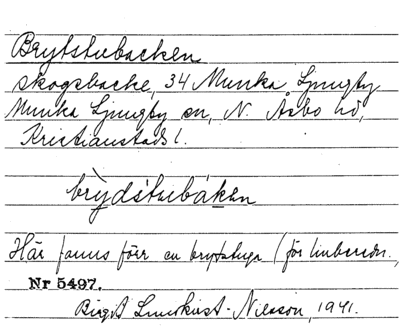 Brytstubacken
skogsbacke, 34 Munka Ljungby
Munka Ljungby sn, N. Åsbo hd,
Kristianstads l.
brỳdstubáken
Här fanns förr en brytstuga (för linberedn.,
Nr 5497.
Birgit Lundkvist-Nilsson, 1941.